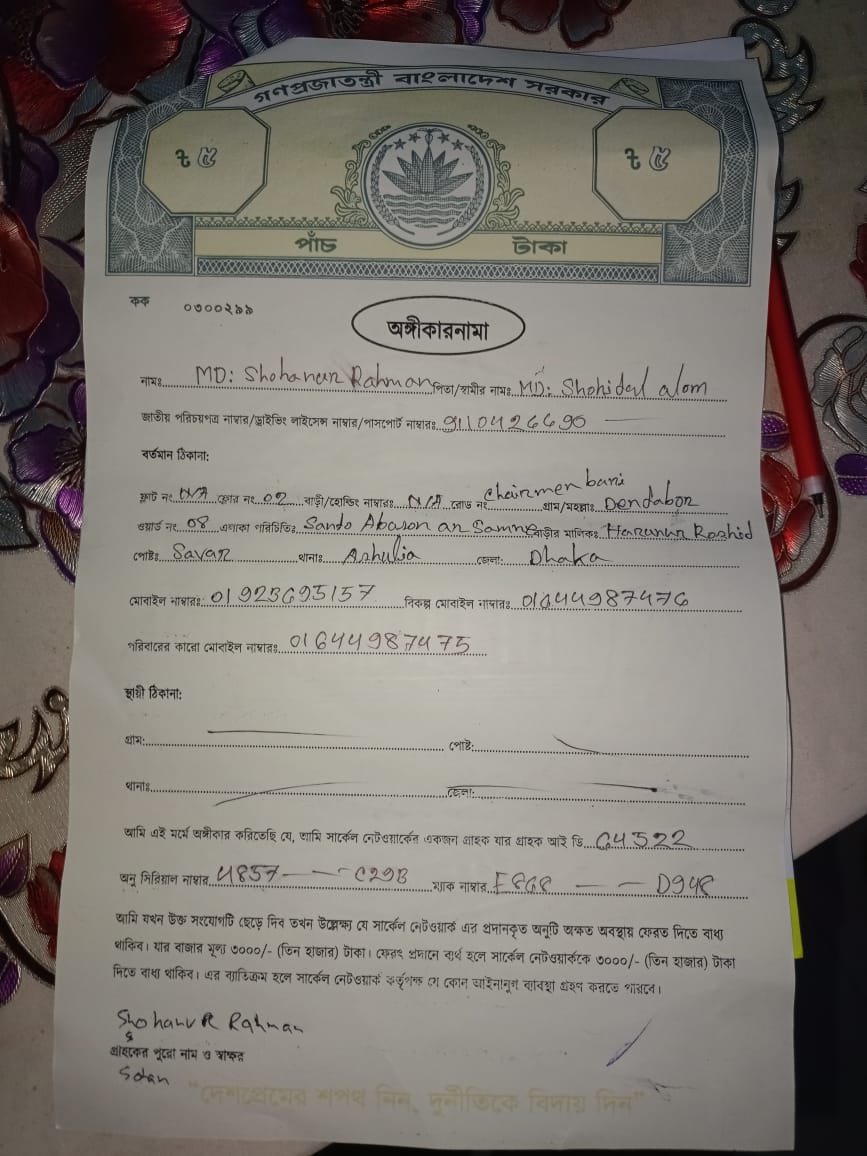 গণপ্রজাতন্ত্রী বাংলাদেশ সরকার
৳ ৫ ৳ ৫
পাঁচ টাকা
কক ০৩০০২৯৯
অঙ্গীকারনামা
নামঃ MD: Shohanur Rahman পিতা/স্বামীর নামঃ MD: Shohidul alom
জাতীয় পরিচয়পত্র নাম্বার/ড্রাইভিং লাইসেন্স নাম্বার/পাসপোর্ট নাম্বারঃ 9110426690
বর্তমান ঠিকানা:
ফ্লাট নং N/A ফ্লোর নং 02 বাড়ী/হোল্ডিং নাম্বারঃ N/A রোড নং Chairmen bari গ্রাম/মহল্লাঃ Dendabor
ওয়ার্ড নং 08 এলাকা পরিচিতিঃ Sando Abason ar Samne বাড়ীর মালিকঃ Harunur Roshid
পোষ্টঃ Savar থানাঃ Ashulia জেলা: Dhaka
মোবাইল নাম্বারঃ 01923695157 বিকল্প মোবাইল নাম্বারঃ 01644987476
পরিবারের কারো মোবাইল নাম্বারঃ 01644987475
স্থায়ী ঠিকানা:
গ্রাম: পোষ্ট:
থানাঃ জেলা:
আমি এই মর্মে অঙ্গীকার করিতেছি যে, আমি সার্কেল নেটওয়ার্কের একজন গ্রাহক যার গ্রাহক আই ডি 64522
অনু সিরিয়াল নাম্বার 4857 C29B ম্যাক নাম্বার E868 D948
আমি যখন উক্ত সংযোগটি ছেড়ে দিব তখন উল্লেক্ষ্য যে সার্কেল নেটওয়ার্ক এর প্রদানকৃত অনুটি অক্ষত অবস্থায় ফেরত দিতে বাধ্য
থাকিব। যার বাজার মূল্য ৩০০০/- (তিন হাজার) টাকা। ফেরৎ প্রদানে ব্যর্থ হলে সার্কেল নেটওয়ার্ককে ৩০০০/- (তিন হাজার) টাকা
দিতে বাধ্য থাকিব। এর ব্যতিক্রম হলে সার্কেল নেটওয়ার্ক কর্তৃপক্ষ যে কোন আইনানুগ ব্যবস্থা গ্রহণ করতে পারবে।
Shohanur Rahman
গ্রাহকের পুরো নাম ও স্বাক্ষর
"দেশপ্রেমের শপথ নিন, দুর্নীতিকে বিদায় দিন"